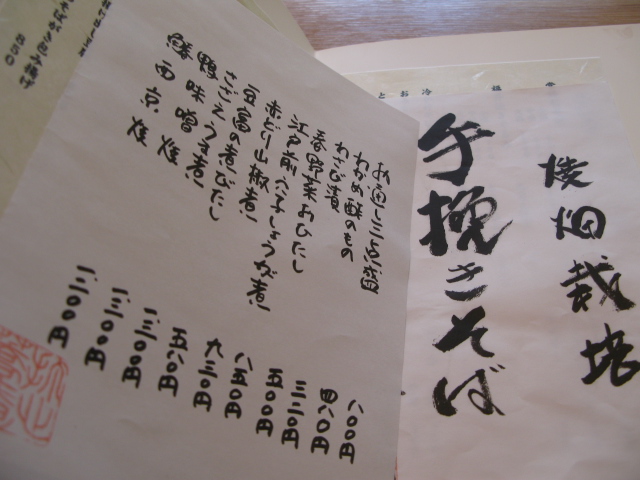 畑栽培
手挽きそば
三点盛
わかめ酢のもの
わさび漬
春野菜おひたし
江戸前穴子しょうが煮
赤どり山椒煮
豆富の煮びたし
さざえうま煮
鴨味噌焼
西京焼
八〇〇円
四八〇円
三三〇円
五〇〇円
八五〇円
九三〇円
五八〇円
一、三〇〇円
一、三〇〇円
一、二〇〇円
850